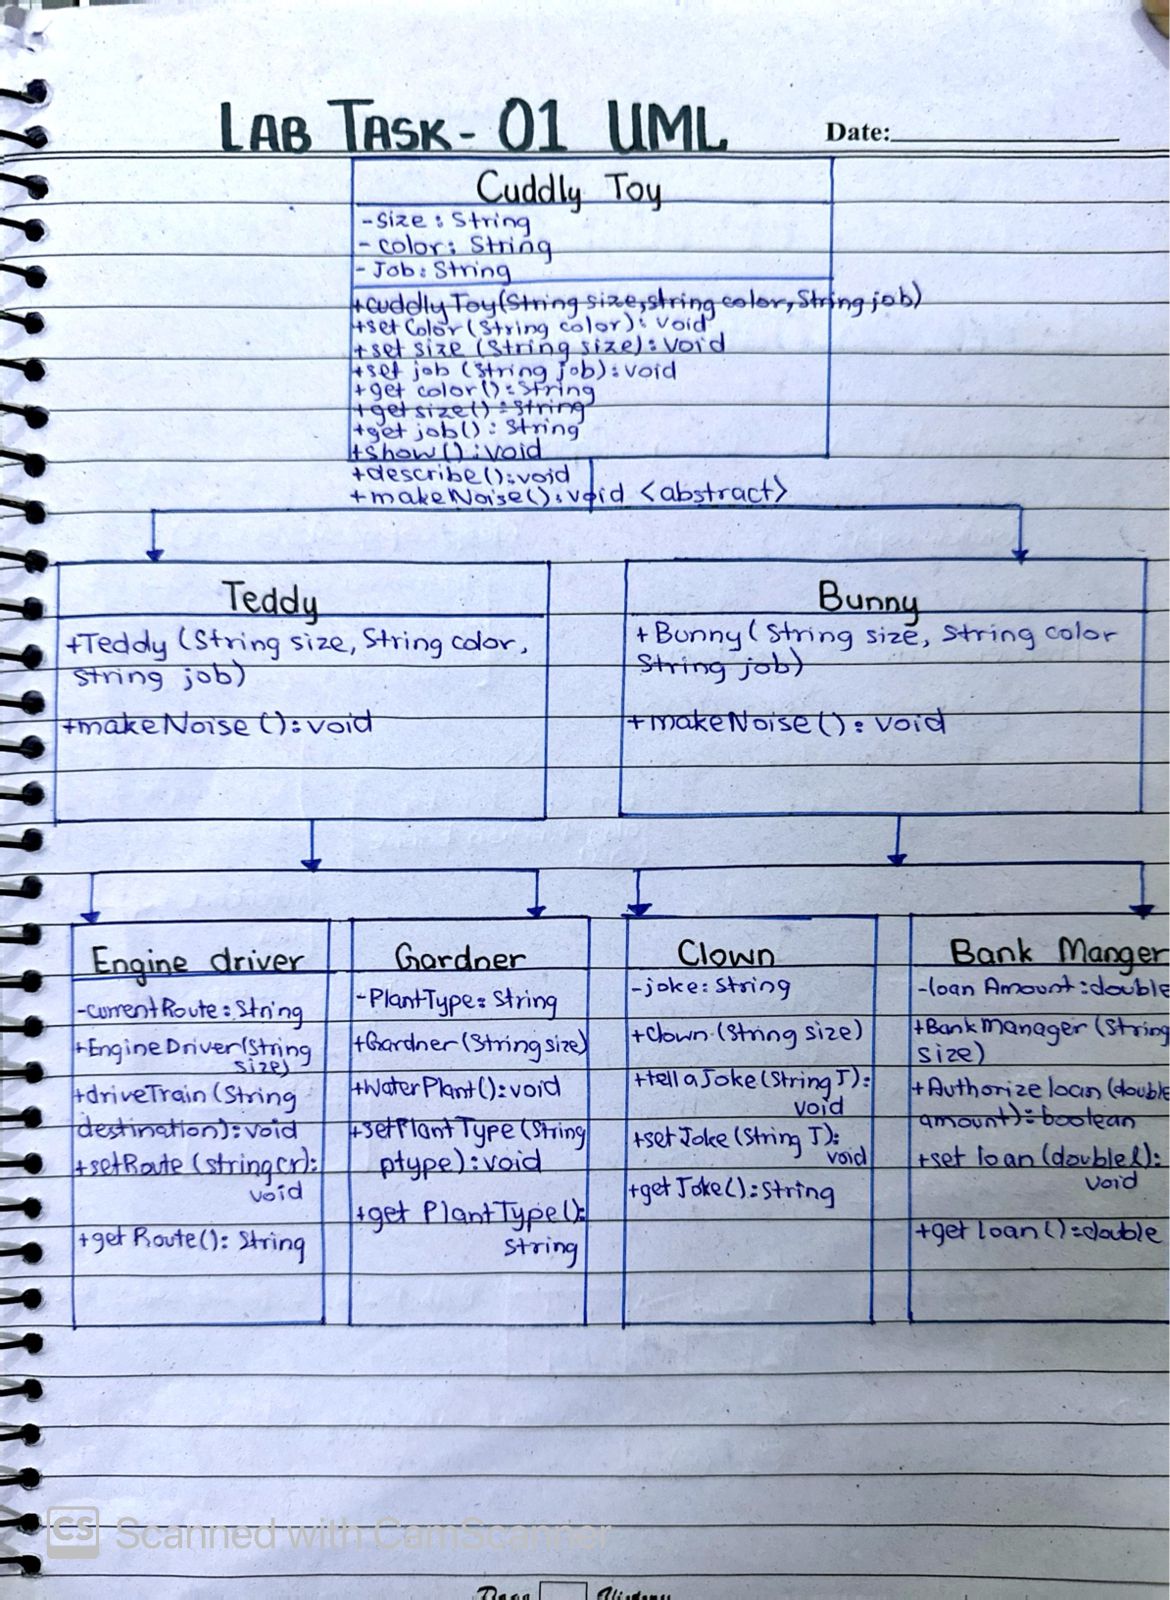 LAB TASK- 01 UML
Date:
Cuddly Toy
-size: String
-color: String
-Job: String
+cuddlyToy(String size,string color,String job)
+set Color (String color): void
+set size (String size): void
+set job (String job): void
+get color(): String
+get size(): String
+get job(): String
+show(): void
+describe(): void
+makeNoise(): void <abstract>
Teddy
+Teddy (String size, String color,
string job)
+makeNoise (): void
Bunny
+Bunny( String size, String color
String job)
+makeNoise (): void
Engine driver
-currentRoute: String
+EngineDriver(String
size)
+driveTrain (String
destination): void
+setRoute (string cr):
void
+get Route(): String
Gardner
-PlantType: String
+Gardner (String size)
+WaterPlant(): void
+setPlant Type (String
ptype): void
+get PlantType():
string
Clown
-joke: String
+Clown (String size)
+tell a Joke (String J):
void
+set Joke (String J):
void
+get Joke(): String
Bank Manger
-loan Amount: double
+Bank Manager (String
size)
+Authorize loan (double
amount): boolean
+set loan (double l):
void
+get loan (): double
CS Scanned with CamScanner